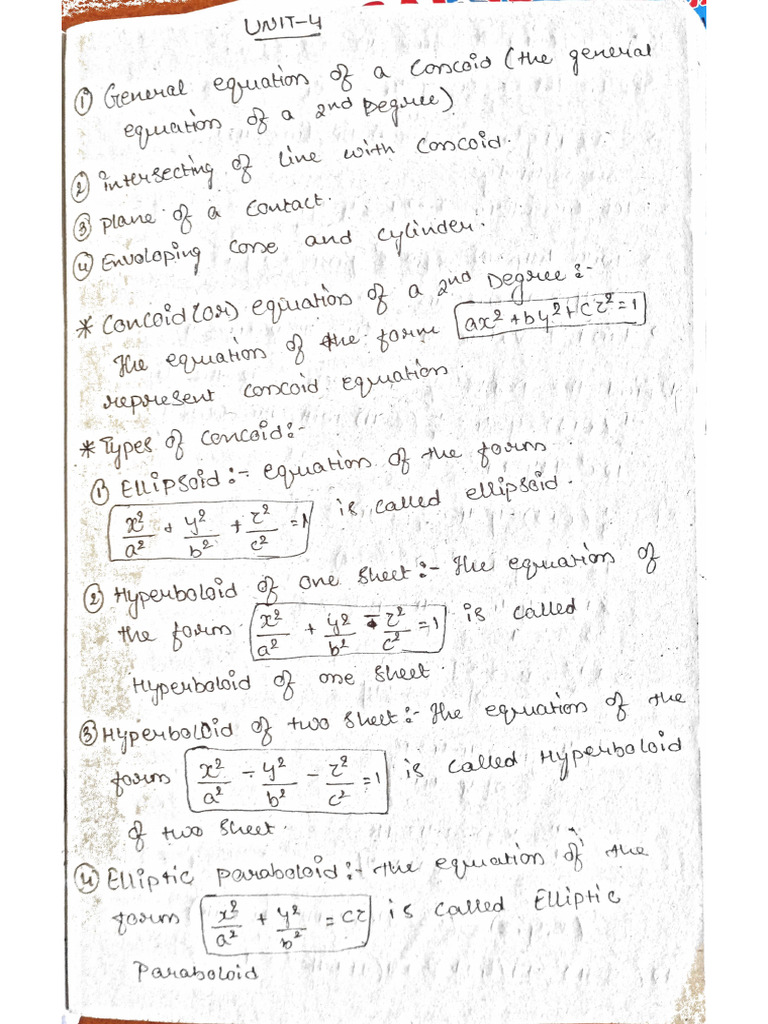 UNIT-4
① General equation of a Concoid (the general
equation of a 2nd Degree)
② intersecting of line with Concoid.
③ plane of a contact.
④ Envoloping Cone and cylinder.
* Concoid (or) equation of a 2nd Degree :-
The equation of the form ax² + by² + cz² = 1
represent concoid equation.
* Types of Concoid :-
① Ellipsoid :- equation of the form
x²/a² + y²/b² + z²/c² = 1 is called ellipsoid.
② Hyperboloid of one sheet :- The equation of
the form x²/a² + y²/b² - z²/c² = 1 is called
Hyperboloid of one sheet.
③ Hyperboloid of two sheet :- The equation of the
form x²/a² - y²/b² - z²/c² = 1 is called Hyperboloid
of two sheet.
④ Elliptic paraboloid :- the equation of the
form x²/a² + y²/b² = cz is called Elliptic
Paraboloid